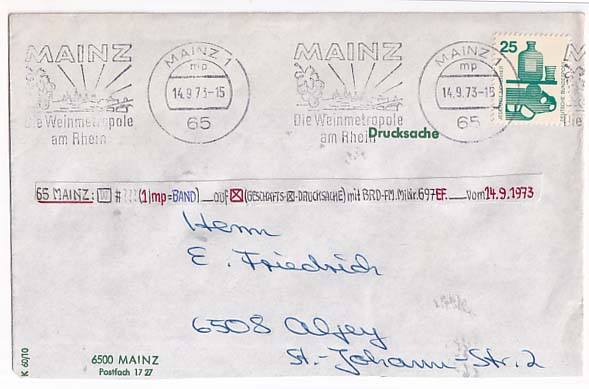 MAINZ
Die Weinmetropole
am Rhein
MAINZ 1
mp
14.9.73-15
65
MAINZ
Die Weinmetropole
am Rhein
MAINZ 1
mp
14.9.73-15
65
25
DEUTSCHE BUNDESPOST
Drucksache
65 MAINZ: (1|mp=BAND) auf (GESCHÄFTS- -DRUCKSACHE) mit BRD-FM. MiNr. 697 EF. vom 14.9.1973
Herrn
E. Friedrich
6508 Alzey
St.-Johann-Str. 2
6500 MAINZ
Postfach 17 27
K 60/10